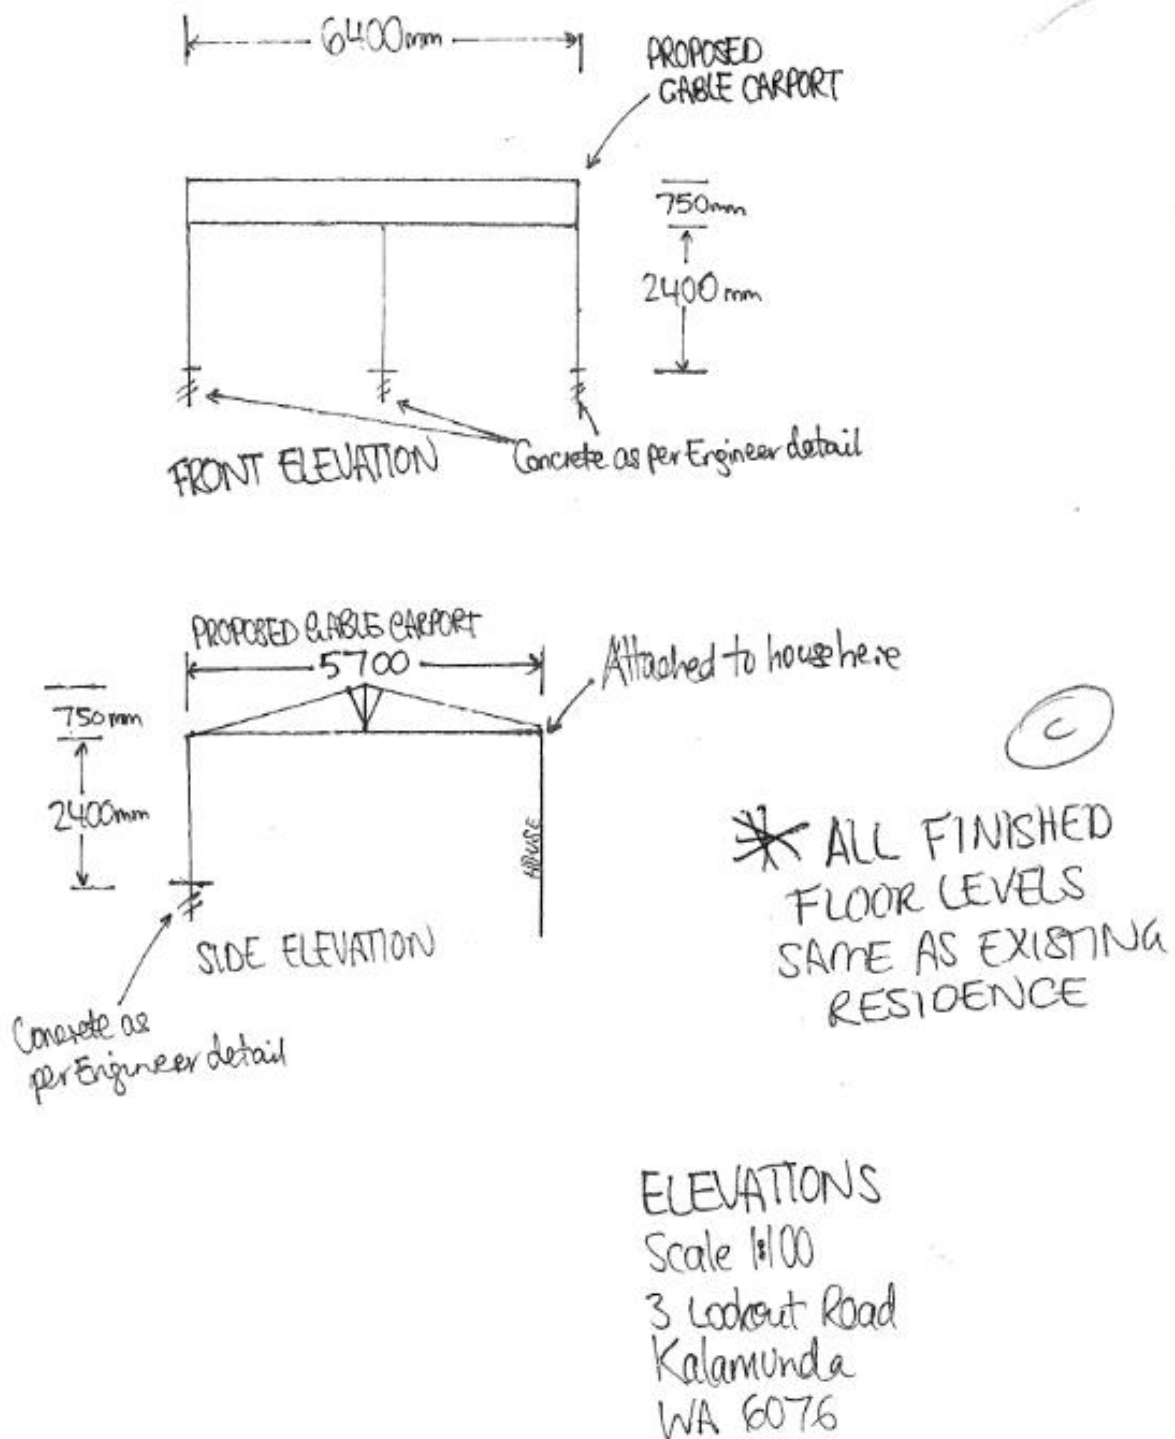 6400mm
PROPOSED
GABLE CARPORT
750mm
2400mm
FRONT ELEVATION
Concrete as per Engineer detail
PROPOSED GABLE CARPORT
5700
Attached to house here
750mm
2400mm
HOUSE
SIDE ELEVATION
Concrete as
per Engineer detail
C
* ALL FINISHED
FLOOR LEVELS
SAME AS EXISTING
RESIDENCE
ELEVATIONS
Scale 1:100
3 Lookout Road
Kalamunda
WA 6076